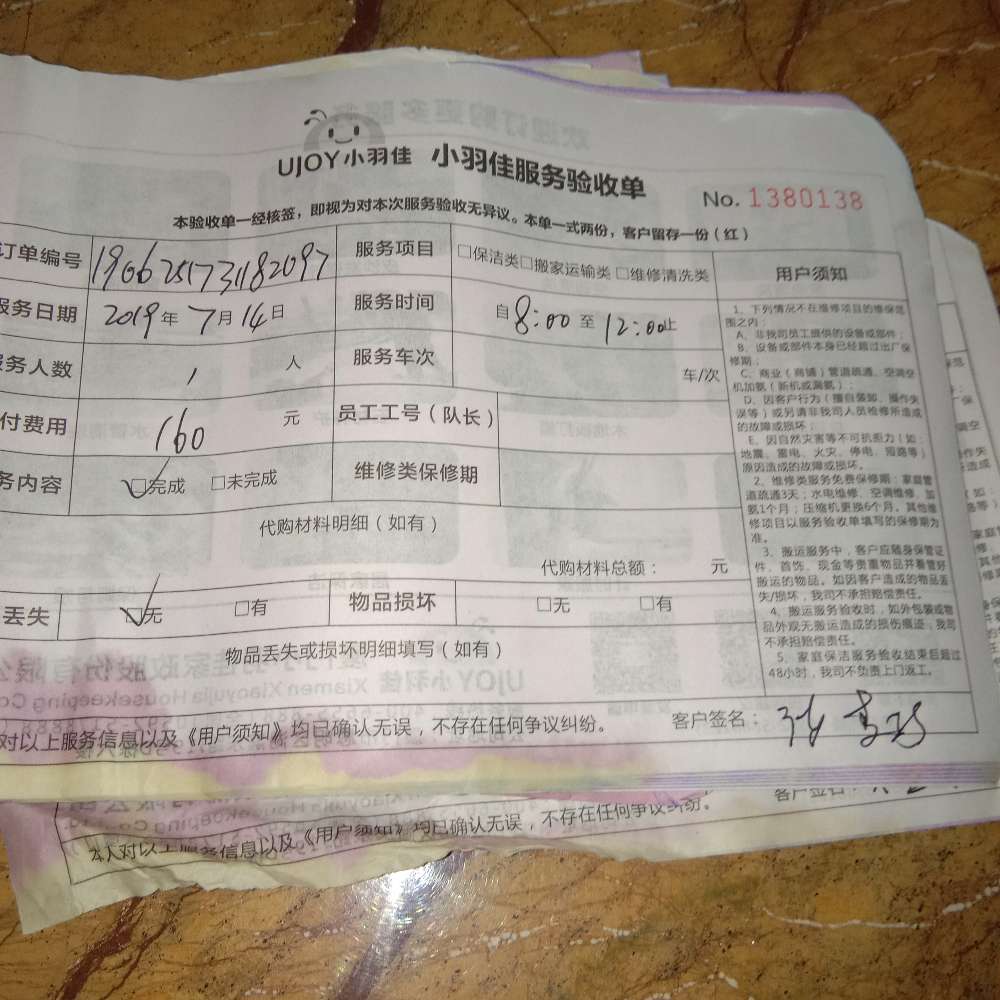 UJOY小羽佳 小羽佳服务验收单
No. 1380138
本验收单一经核签，即视为对本次服务验收无异议。本单一式两份，客户留存一份（红）
订单编号 1906251731182097 服务项目 □保洁类□搬家运输类 □维修清洗类 用户须知
服务日期 2019年7月14日 服务时间 自8:00至12:00止
服务人数 1 人 服务车次 车/次
付费用 160 元 员工工号（队长）
务内容 ☑完成 □未完成 维修类保修期
代购材料明细（如有）
代购材料总额： 元
丢失 ☑无 □有 物品损坏 □无 □有
物品丢失或损坏明细填写（如有）
1、下列情况不在维修项目的维保范
围之内：
A、非我司员工提供的设备或部件；
B、设备或部件本身已经超过出厂保
修期；
C、商业（商铺）管道疏通、空调空
机加氨（新机或漏氨）；
D、因客户行为（擅自装卸、操作失
误等）或另请非我司人员检修所造成
的故障或损坏；
E、因自然灾害等不可抗拒力（如：
地震、雷电、火灾、停电、短路等）
原因造成的故障或损坏。
2、维修类服务免费保修期：家庭管
道疏通3天；水电维修、空调维修、加
氨1个月；压缩机更换6个月。其他维
修项目以服务验收单填写的保修期为
准。
3、搬运服务中，客户应随身保管证
件、首饰、现金等贵重物品并看管好
搬运的物品。如因客户造成的物品丢
失/损坏，我司不承担赔偿责任。
4、搬运服务验收时，如外包装或物
品外观无搬运造成的损伤痕迹，我司
不承担赔偿责任。
5、家庭保洁服务验收结束后超过
48小时，我司不负责上门返工。
对以上服务信息以及《用户须知》均已确认无误，不存在任何争议纠纷。 客户签名：
客户签名：
本人对以上服务信息以及《用户须知》均已确认无误，不存在任何争议纠纷。